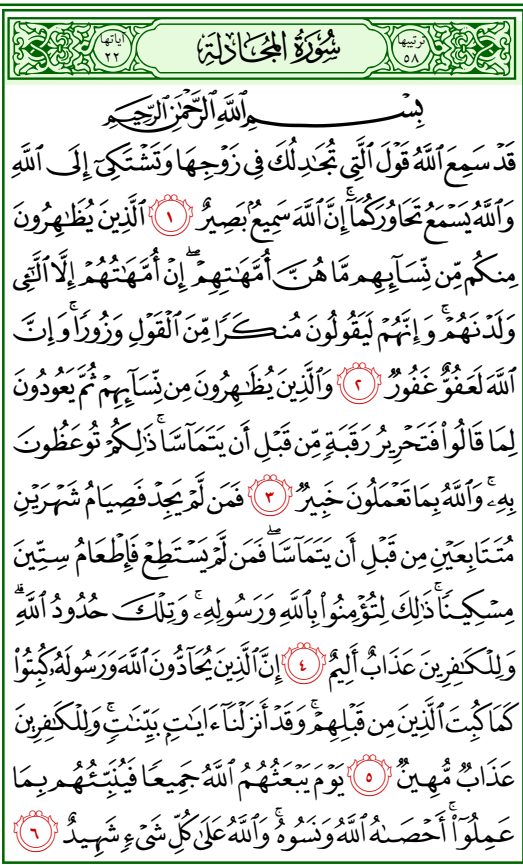 ترتيبها ٥٨ سُورَةُ المُجَادلَةِ آياتها ٢٢
بِسْمِ اللَّهِ الرَّحْمَٰنِ الرَّحِيمِ
قَدْ سَمِعَ اللَّهُ قَوْلَ الَّتِي تُجَادِلُكَ فِي زَوْجِهَا وَتَشْتَكِي إِلَى اللَّهِ
وَاللَّهُ يَسْمَعُ تَحَاوُرَكُمَا ۚ إِنَّ اللَّهَ سَمِيعٌ بَصِيرٌ ١ الَّذِينَ يُظَاهِرُونَ
مِنكُم مِّن نِّسَائِهِم مَّا هُنَّ أُمَّهَاتِهِمْ ۖ إِنْ أُمَّهَاتُهُمْ إِلَّا اللَّائِي
وَلَدْنَهُمْ ۚ وَإِنَّهُمْ لَيَقُولُونَ مُنكَرًا مِّنَ الْقَوْلِ وَزُورًا ۚ وَإِنَّ
اللَّهَ لَعَفُوٌّ غَفُورٌ ٢ وَالَّذِينَ يُظَاهِرُونَ مِن نِّسَائِهِمْ ثُمَّ يَعُودُونَ
لِمَا قَالُوا فَتَحْرِيرُ رَقَبَةٍ مِّن قَبْلِ أَن يَتَمَاسَّا ۚ ذَٰلِكُمْ تُوعَظُونَ
بِهِ ۚ وَاللَّهُ بِمَا تَعْمَلُونَ خَبِيرٌ ٣ فَمَن لَّمْ يَجِدْ فَصِيَامُ شَهْرَيْنِ
مُتَتَابِعَيْنِ مِن قَبْلِ أَن يَتَمَاسَّا ۖ فَمَن لَّمْ يَسْتَطِعْ فَإِطْعَامُ سِتِّينَ
مِسْكِينًا ۚ ذَٰلِكَ لِتُؤْمِنُوا بِاللَّهِ وَرَسُولِهِ ۚ وَتِلْكَ حُدُودُ اللَّهِ ۗ
وَلِلْكَافِرِينَ عَذَابٌ أَلِيمٌ ٤ إِنَّ الَّذِينَ يُحَادُّونَ اللَّهَ وَرَسُولَهُ كُبِتُوا
كَمَا كُبِتَ الَّذِينَ مِن قَبْلِهِمْ ۚ وَقَدْ أَنزَلْنَا آيَاتٍ بَيِّنَاتٍ ۚ وَلِلْكَافِرِينَ
عَذَابٌ مُّهِينٌ ٥ يَوْمَ يَبْعَثُهُمُ اللَّهُ جَمِيعًا فَيُنَبِّئُهُم بِمَا
عَمِلُوا ۚ أَحْصَاهُ اللَّهُ وَنَسُوهُ ۚ وَاللَّهُ عَلَىٰ كُلِّ شَيْءٍ شَهِيدٌ ٦